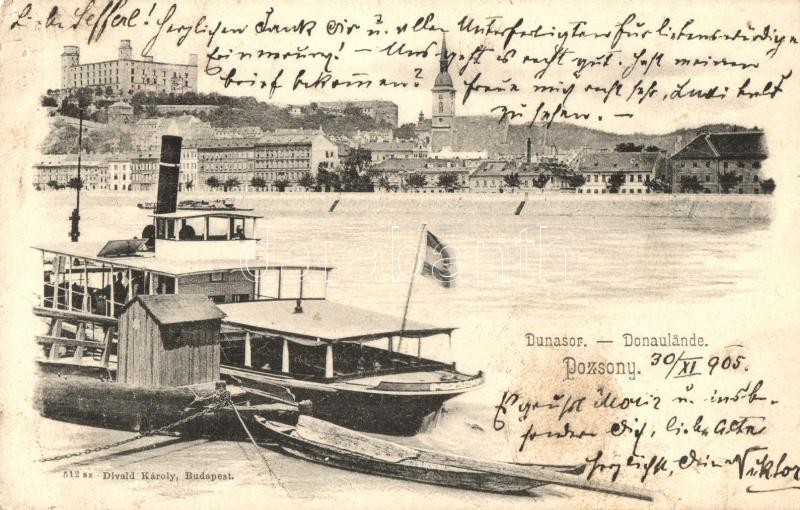 Liebe Sefferl! Herzlichen Dank Dir u. allen Unterfertigten für liebenswürdige
Erinnerung! — Uns geht es recht gut. Hast meinen
Brief bekommen? Freue mich recht sehr, Euch bald
zu sehen. —
darabanth
Dunasor. — Donaulände.
Pozsony. 30/XI 905.
Es grüsst Moriz u. insb-
sondere Dich, liebe Alte
herzlichst, Deine Viktor
512 sz Divald Károly, Budapest.